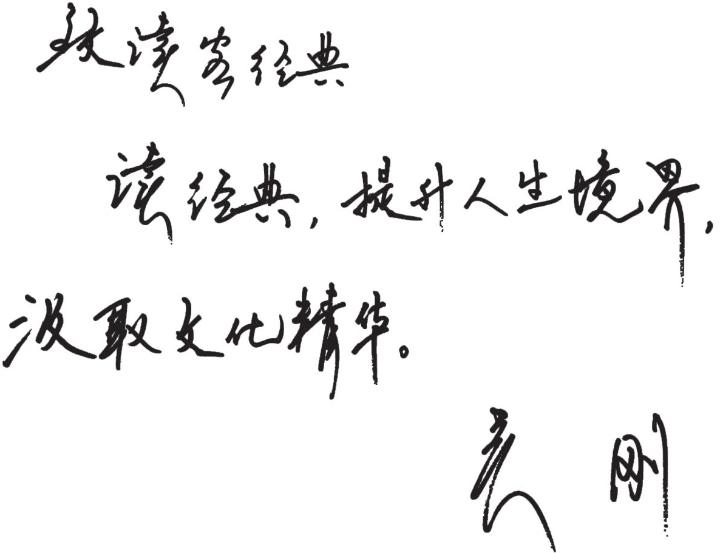 致读客经典
读经典，提升人生境界，
汲取文化精华。
袁 刚